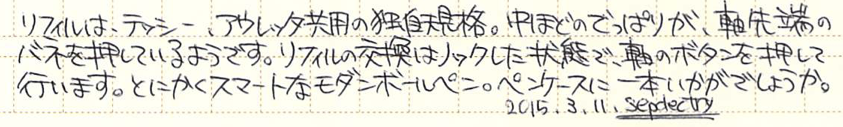 リフィルは、テッシー、アウレッタ共用の独自規格。中ほどのでっぱりが、軸先端の
バネを押しているようです。リフィルの交換はノックした状態で、軸のボタンを押して
行います。とにかくスマートなモダンボールペン。ペンケースに一本いかがでしょうか。
2015.3.11. sepdectry